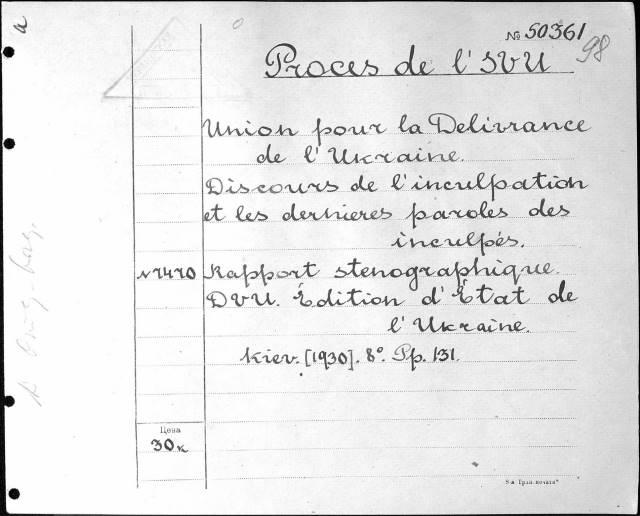 a
№ 50361
98
Proces de l'SVU
Union pour la Delivrance
de l'Ukraine.
Discours de l'inculpation
et les dernieres paroles des
inculpés.
N7470 Rapport stenographique.
DVU. Édition d'État de
l'Ukraine.
Kiev. [1930]. 8°. Pp. 131.
Цена
30к